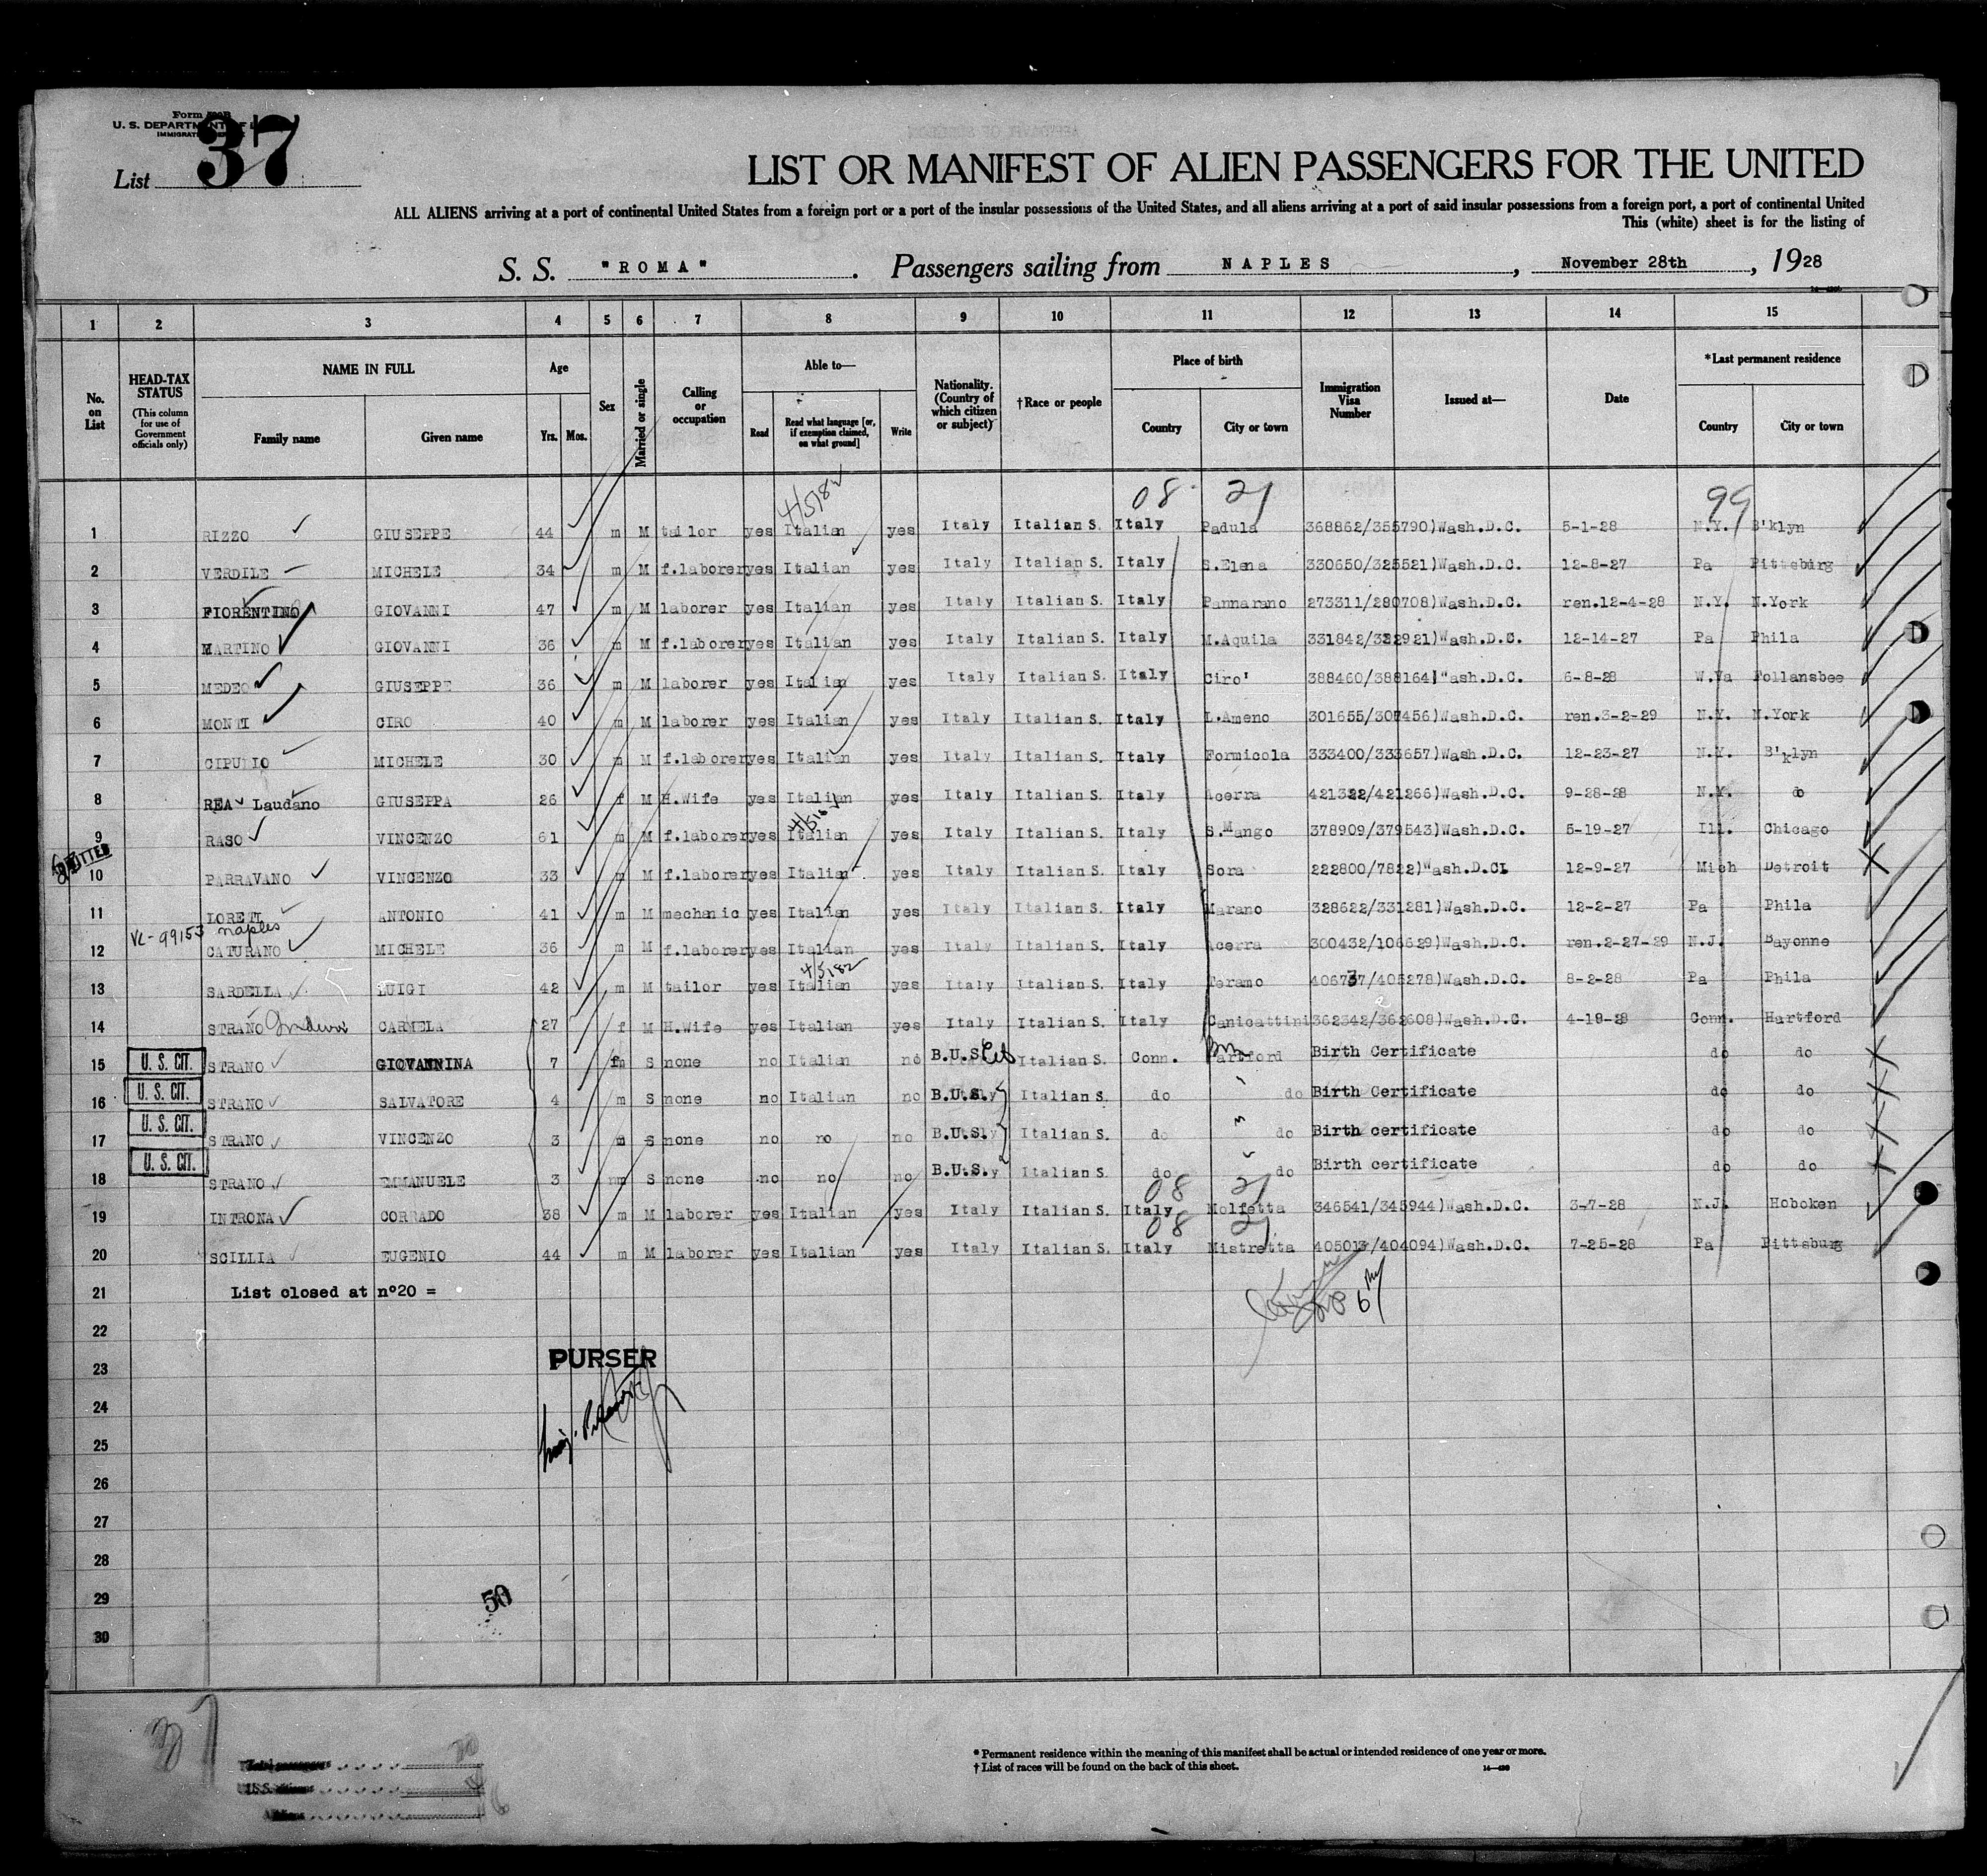 Form
U. S. DEPARTMENT OF L
IMMIGRAT
List 37
LIST OR MANIFEST OF ALIEN PASSENGERS FOR THE UNITED
ALL ALIENS arriving at a port of continental United States from a foreign port or a port of the insular possessions of the United States, and all aliens arriving at a port of said insular possessions from a foreign port, a port of continental United
This (white) sheet is for the listing of
S. S. "ROMA". Passengers sailing from NAPLES, November 28th, 1928
1 2 3 4 5 6 7 8 9 10 11 12 13 14 15
No. on List
HEAD-TAX STATUS (This column for use of Government officials only)
NAME IN FULL
Family name Given name
Age
Yrs. Mos.
Sex
Married or single
Calling or occupation
Able to—
Read Read what language [or, if exemption claimed, on what ground] Write
Nationality. (Country of which citizen or subject)
†Race or people
Place of birth
Country City or town
Immigration Visa Number
Issued at—
Date
*Last permanent residence
Country City or town
4/5/82 08 21 99
1 RIZZO GIUSEPPE 44 m M tailor yes Italian yes Italy Italian S. Italy Padula 368862/355790)Wash.D.C. 5-1-28 N.Y. B'klyn
2 VERDILE MICHELE 34 m M f.laborer yes Italian yes Italy Italian S. Italy S.Elena 330650/325521)Wash.D.C. 12-8-27 Pa Pittsburg
3 FIORENTINO GIOVANNI 47 m M laborer yes Italian yes Italy Italian S. Italy Pannarano 273311/280708)Wash.D.C. ren.12-4-28 N.Y. N.York
4 MARTINO GIOVANNI 36 m M f.laborer yes Italian yes Italy Italian S. Italy M.Aquila 331842/332921)Wash.D.C. 12-14-27 Pa Phila
5 MEDEO GIUSEPPE 36 m M laborer yes Italian yes Italy Italian S. Italy Ciro' 388460/388164)"ash.D.C. 6-8-28 W.Va Follansbee
6 MONTI CIRO 40 m M laborer yes Italian yes Italy Italian S. Italy L.Ameno 301655/307456)Wash.D.C. ren.3-2-29 N.Y. N.York
7 CIPULIO MICHELE 30 m M f.laborer yes Italian yes Italy Italian S. Italy Formicola 333400/333657)Wash.D.C. 12-23-27 N.Y. B'klyn
8 REA Laudano GIUSEPPA 26 f M H.Wife yes Italian yes Italy Italian S. Italy Acerra 421322/421266)Wash.D.C. 9-28-28 N.Y. do
9 RASO VINCENZO 61 m M f.laborer yes Italian yes Italy Italian S. Italy S.Mango 378909/379543)Wash.D.C. 5-19-27 Ill. Chicago
ADMITTED
10 PARRAVANO VINCENZO 33 m M f.laborer yes Italian yes Italy Italian S. Italy Sora 222800/7822)Wash.D.C. 12-9-27 Mich Detroit
11 LORETI ANTONIO 41 m M mechanic yes Italian yes Italy Italian S. Italy Marano 328622/331281)Wash.D.C. 12-2-27 Pa Phila
VL-99153 Naples
12 CATURANO MICHELE 36 m M f.laborer yes Italian yes Italy Italian S. Italy Acerra 300432/106629)Wash.D.C. ren.2-27-29 N.J. Bayonne
4/5182
13 SARDELLA LUIGI 42 m M tailor yes Italian yes Italy Italian S. Italy Teramo 406737/405278)Wash.D.C. 8-2-28 Pa Phila
14 STRANO CARMELA 27 f M H.Wife yes Italian yes Italy Italian S. Italy Canicattini 362342/362608)Wash.D.C. 4-19-28 Conn. Hartford
15 U. S. CIT. STRANO GIOVANNINA 7 f S none no Italian no B.U.S. Italian S. Conn. Hartford Birth Certificate do do
16 U. S. CIT. STRANO SALVATORE 4 m S none no Italian no B.U.S. Italian S. do do Birth Certificate do do
17 U. S. CIT. STRANO VINCENZO 3 m S none no no no B.U.S. Italian S. do do Birth certificate do do
18 U. S. CIT. STRANO EMMANUELE 3 m S none no no no B.U.S. Italian S. do do Birth certificate do do
08 21
19 INTRONA CORRADO 38 m M laborer yes Italian yes Italy Italian S. Italy Molfetta 346541/345944)Wash.D.C. 3-7-28 N.J. Hoboken
08 21
20 SCILLIA EUGENIO 44 m M laborer yes Italian yes Italy Italian S. Italy Mistretta 405013/404094)Wash.D.C. 7-25-28 Pa Pittsburg
21 List closed at n°20 =
22
23 PURSER
24
25
26
27
28
29 50
30
37
Total passengers 20
U.S. citizens
Aliens 16
* Permanent residence within the meaning of this manifest shall be actual or intended residence of one year or more.
† List of races will be found on the back of this sheet.